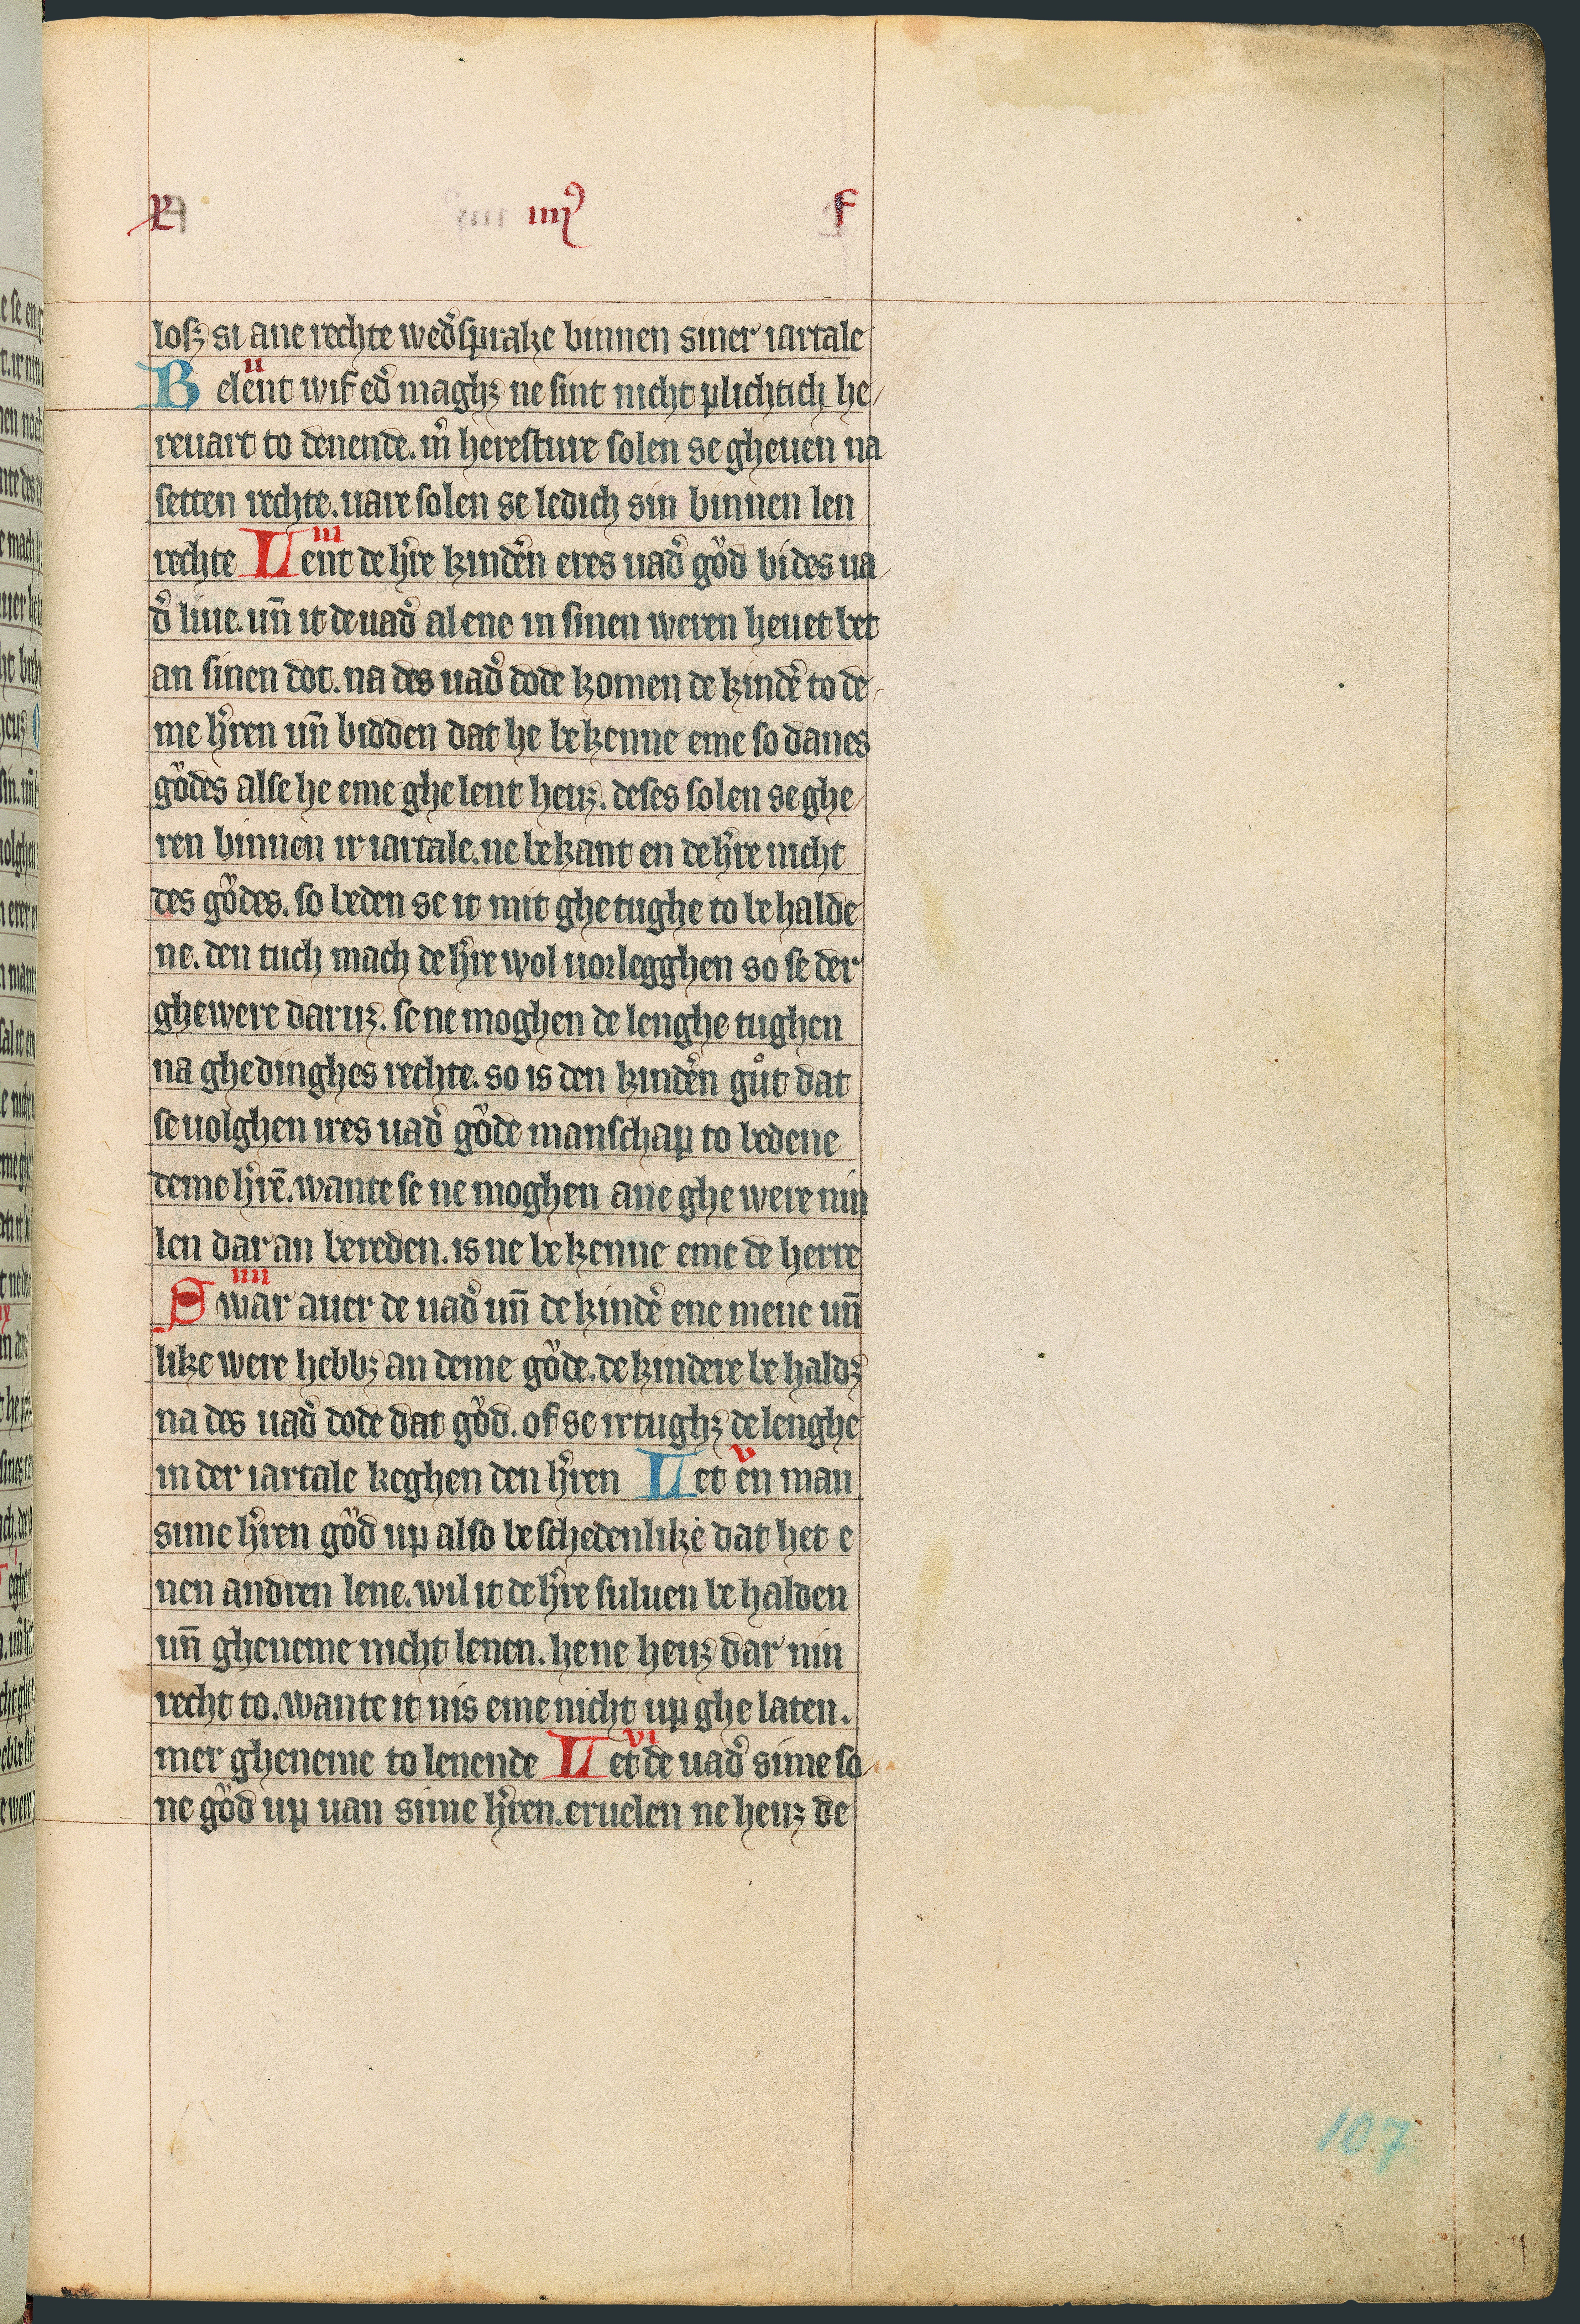 P iiii⁹ f
losꝫ si ane rechte wed̉sprake binnen siner iartale
ii
Belent wif ed̉ maghꝫ ne sint nicht plichtich he-
reuart to denende. m̉ heresture solen se gheuen na
setten rechte. uare solen se ledich sin binnen len
iii
rechte Lent de h̉re kinden̉ eres uad̉ gǒd bi des ua-
d̉ liue. un̄ it de uad̉ alene in sinen weren heuet bet
an sinen dot. na des uad̉ dode komen de kindẻ to de-
me h̉ren un̄ bidden dat he bekenne eme so danes
gǒdes alse he eme ghelent heuꝫ. deses solen se ghe-
ren binnen ir iartale. ne bekant en de h̉re nicht
des gǒdes. so beden se it mit ghetughe to behalde
ne. den tuch mach de h̉re wol uorlegghen so se der
ghewere daruꝫ. se ne moghen de lenghe tughen
na ghedinghes rechte. so is den kinden̉ gůt dat
se uolghen ires uad̉ gǒde manschap to bedene
deme h̉rē. wante se ne moghen ane ghewere nin
len dar an bereden. is ne bekenne eme de herre
iiii
Swar auer de uad̉ un̄ de kindẻ ene mene un̄
like were hebbꝫ an deme gǒde. de kindere behaldꝫ
na des uad̉ dode dat gǒd. of se irtughꝫ de lenghe
v
in der iartale keghen den h̉ren Let en man
sime h̉ren gǒd up also beschedenlike dat het e
nen andren lene. wil it de h̉re suluen behalden
un̄ gheneme nicht lenen. he ne heuꝫ dar nin
recht to. wante it nis eme nicht up ghelaten.
vi
mer gheneme to lenende Let de uad̉ sime so-
ne gǒd up uan sime h̉ren. eruelen ne heuꝫ de
107